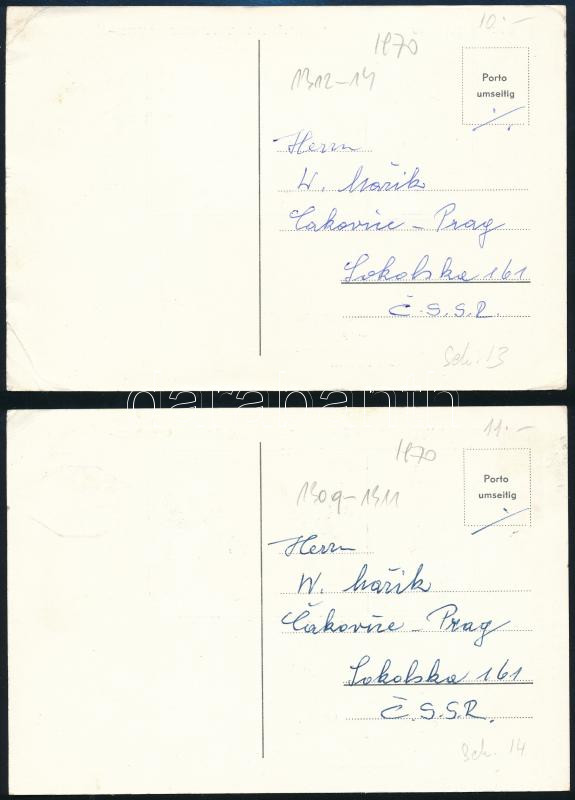 10.-
1970
1312-14
Porto
umseitig
Herrn
W. Mařik
Čakovice - Prag
Sokolska 161
Č.S.S.R.
Sch. 13
darabanth
11.-
1970
1309-1311
Porto
umseitig
Herrn
W. Mařik
Čakovice - Prag
Sokolska 161
Č.S.S.R.
Sch. 14